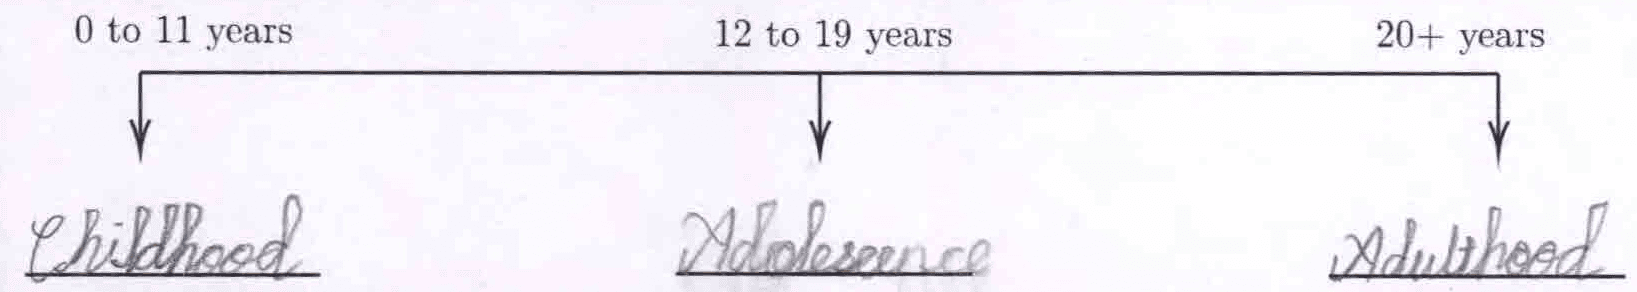 0 to 11 years 12 to 19 years 20+ years
Childhood Adolescence Adulthood